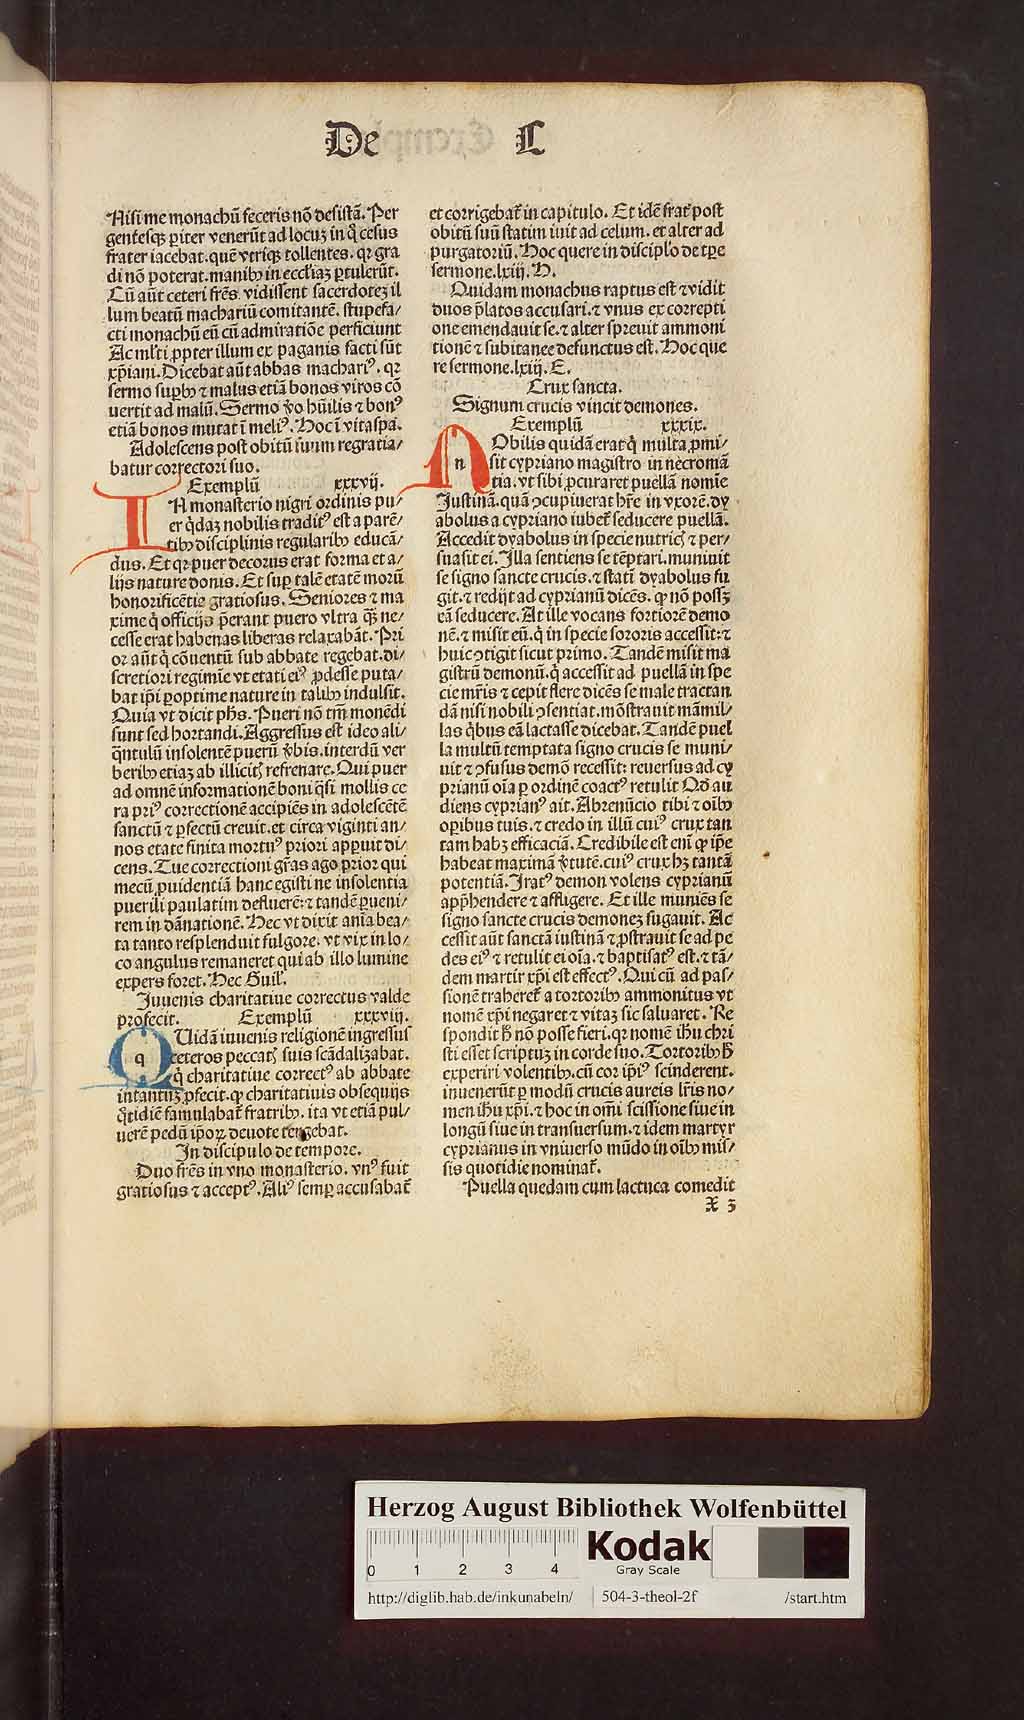 De C
Nisi me monachū feceris nō desistā. Per
gentesqꝫ ꝑiter venerūt ad locuꝫ in q̇ cesus
frater iacebat. quē vtriqꝫ tollentes. qꝛ gra
di nō poterat. manibꝰ in eccl'iaꝫ ꝑtulerūt.
Cū aūt ceteri frēs vidissent sacerdoteꝫ il
lum beatū machariū comitantē. stupefa/
cti monachū eū cū admiratiōe perficiunt
Ac ml'ti ꝓpter illum ex paganis facti sūt
xp̄iani. Dicebat aūt abbas machariꝰ. qꝛ
sermo suꝑbꝰ ⁊ malus etiā bonos viros cō
uertit ad malū. Sermo v̓o hūilis ⁊ bonꝰ
etiā bonos mutat ī meliꝰ. Hoc ī vitaspa.
Adolescens post obitū suum regratia/
batur correctori suo.
Exemplū xxxvij.
IN monasterio nigri ordinis pu/
er q̇daꝫ nobilis traditꝰ est a parē/
tibꝰ disciplinis regularibꝰ educā/
dus. Et qꝛ puer decorus erat forma et a/
lijs nature donis. Et suꝑ talē etatē morū
honorificētie gratiosus. Seniores ⁊ ma
xime q̇ officijs p̄erant puero vltra qꝫ ne/
cesse erat habenas liberas relaxabāt. Pri
or aūt q̇ cōuentū sub abbate regebat. di/
scretiori regimīe vt etati eiꝰ ꝓdesse puta/
bat ip̄i ꝑoptime nature in talibꝰ indulsit.
Quia vt dicit ph̄s. Pueri nō tm̄ monēdi
sunt sed hortandi. Aggressus est ideo ali/
q̄ntulū insolentē puerū v̓bis. interdū ver
beribꝰ etiaꝫ ab illicitꝭ refrenare. Qui puer
ad omnē informationē boni q̄si mollis ce
ra priꝰ correctionē accipiēs in adolescētē
sanctū ⁊ ꝑfectū creuit. et circa viginti an/
nos etate finita mortuꝰ priori apꝑuit di/
cens. Tue correctioni gr̄as ago prior qui
mecū ꝓuidentiā hanc egisti ne insolentia
puerili paulatim defluerē: ⁊ tandē ꝑueni/
rem in dānationē. Hec vt dixit anīa bea/
ta tanto resplenduit fulgore. vt vix in lo/
co angulus remaneret qui ab illo lumine
expers foret. Hec Guil.
Juuenis charitatiue correctus valde
profecit. Exemplū xxxviij.
QUidā iuuenis religionē ingressus
ceteros peccatꝭ suis scādalizabat.
q̇ charitatiue correctꝰ ab abbate
intantuꝫ ꝓfecit. ꝙ charitatiuis obsequijs
q̇tidiē famulabat̄ fratribꝰ. ita vt etiā pul/
uerē pedū ip̄oꝝ deuote tergebat.
In discipulo de tempore.
Duo frēs in vno monasterio. vnꝰ fuit
gratiosus ⁊ acceptꝰ. Aliꝰ semꝑ accusabat̄
et corrigebat̄ in capitulo. Et idē frat̄ post
obitū suū statim iuit ad celum. et alter ad
purgatoriū. Hoc quere in discipl'o de tꝑe
sermone. lxiij. H.
Quidam monachus raptus est ⁊ vidit
duos p̄latos accusari. ⁊ vnus ex correpti
one emendauit se. ⁊ alter spreuit ammoni
tionē ⁊ subitanee defunctus est. Hoc que
re sermone. lxiij. E.
Crux sancta.
Signum crucis vincit demones.
Exemplū xxxix.
NObilis quidā erat q̇ multa ꝓmi/
sit cypriano magistro in necromā
tia. vt sibi ꝓcuraret puellā nomīe
Justinā. quā ↄcupiuerat hr̄e in vxorē. dy
abolus a cypriano iubet̄ seducere puellā.
Accedit dyabolus in specie nutricꝭ ⁊ per/
suasit ei. Illa sentiens se tēptari. muniuit
se signo sancte crucis. ⁊ statī dyabolus fu
git. ⁊ redijt ad cyprianū dicēs. ꝙ nō possꝫ
eā seducere. At ille vocans fortiorē demo
nē. ⁊ misit eū. q̇ in specie sororis accessit: ⁊
huic ↄtigit sicut primo. Tandē misit ma
gistrū demonū. q̇ accessit ad puellā in spe
cie mr̄is ⁊ cepit flere dicēs se male tractan
dā nisi nobili ↄsentiat. mōstrauit māmil/
las q̇bus eā lactasse dicebat. Tandē puel
la multū temptata signo crucis se muni/
uit ⁊ ↄfusus demō recessit: reuersus ad cy
prianū oīa ꝑ ordinē coactꝰ retulit Qd̄ au
diens cyprianꝰ ait. Abrenūcio tibi ⁊ oībꝰ
oꝑibus tuis. ⁊ credo in illū cuiꝰ crux tan
tam habꝫ efficaciā. Credibile est enī ꝙ ip̄e
habeat maximā v̓tutē. cuiꝰ crux hꝫ tantā
potentiā. Iratꝰ demon volens cyprianū
app̄hendere ⁊ affligere. Et ille muniēs se
signo sancte crucis demoneꝫ fugauit. Ac
cessit aūt sanctā iustinā ⁊ ꝓstrauit se ad pe
des eiꝰ ⁊ retulit ei oīa. ⁊ baptisatꝰ est. ⁊ tā/
dem martir xp̄i est effectꝰ. Qui cū ad pas/
sionē traheret̄ a tortoribꝰ ammonitus vt
nomē xp̄i negaret ⁊ vitaꝫ sic saluaret. Re
spondit h̄ nō posse fieri. qꝛ nomē ih̄u chri
sti esset scriptuꝫ in corde suo. Tortoribꝰ h̄
experiri volentibꝰ. cū cor ip̄iꝰ scinderent.
inuenerūt ꝑ modū crucis aureis lr̄is no/
men ih̄u xp̄i. ⁊ hoc in om̄i scissione siue in
longū siue in transuersum. ⁊ idem martyr
cyprianus in vniuerso mūdo in oībꝰ mis/
sis quotidie nominat̄.
Puella quedam cum lactuca comedit
X 3
Herzog August Bibliothek Wolfenbüttel
0 1 2 3 4
Kodak
Gray Scale
http://diglib.hab.de/inkunabeln/ 504-3-theol-2f /start.htm